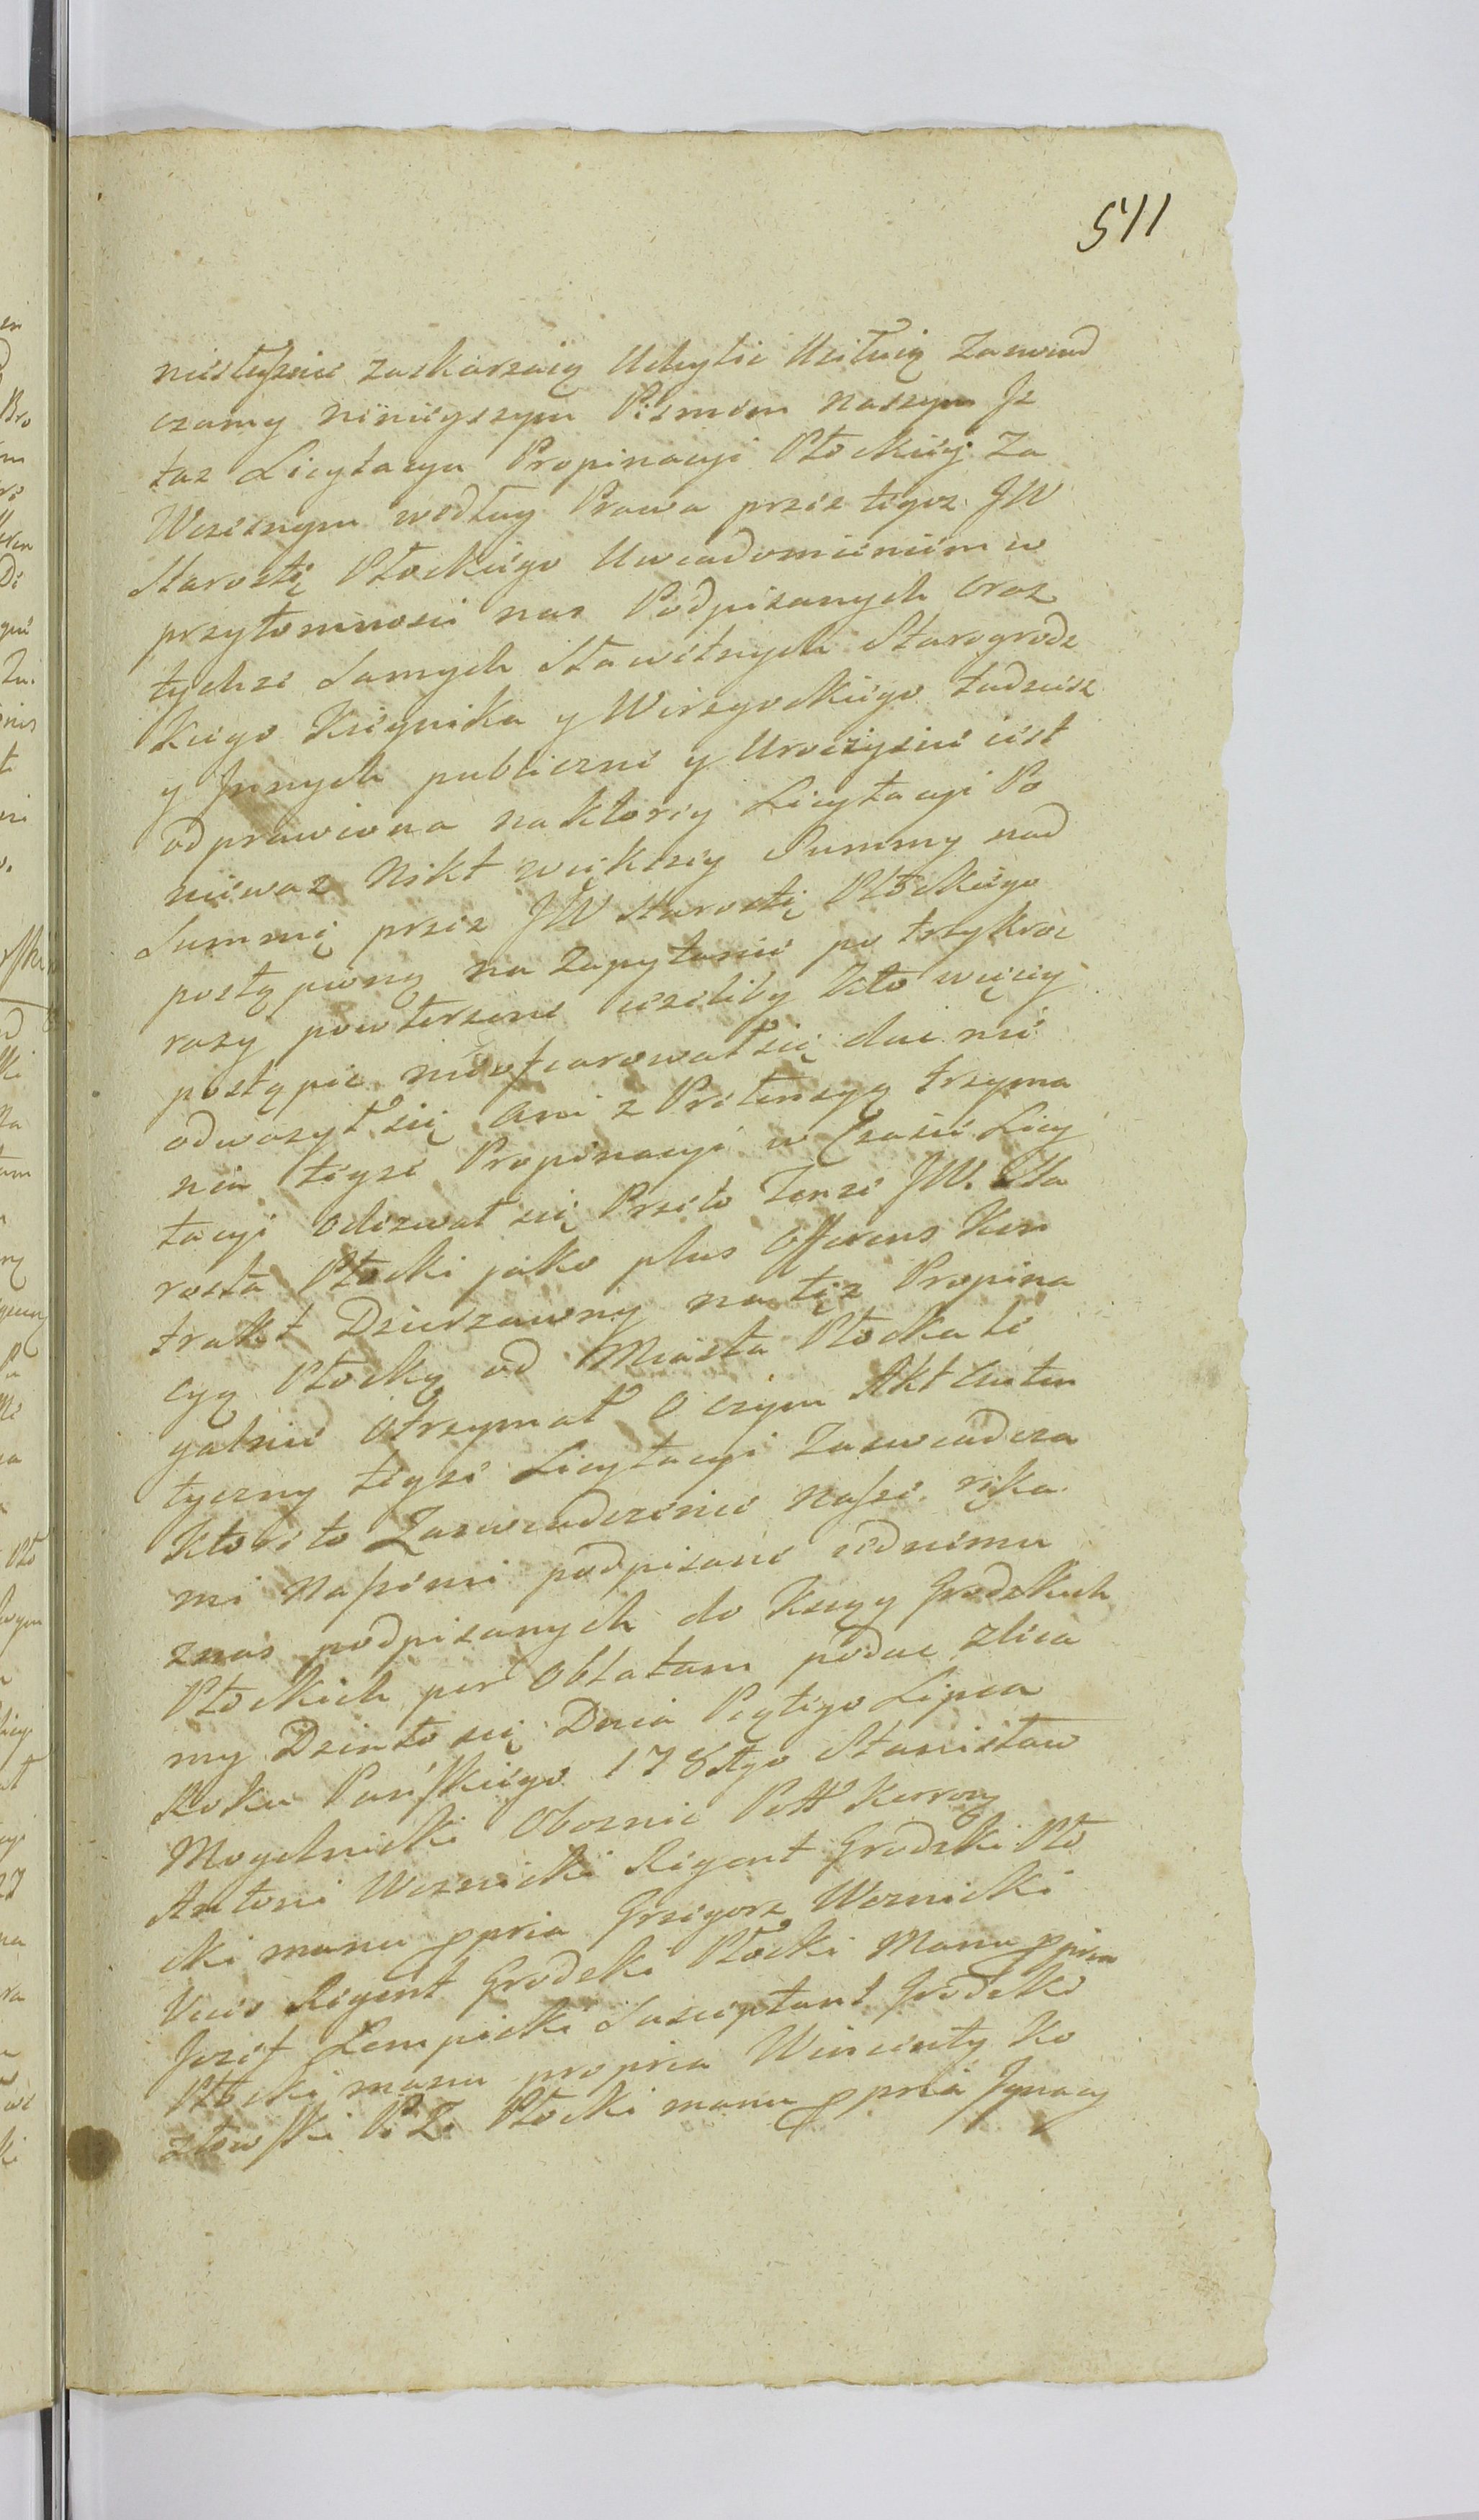 511
niesłusznie zaskarzaią Uchylić Usiłuią Zaswiad
czamy ninieyszym Pismem naszym Jz
taz Licytacya Propinacyi Płockiey Za
Wczesnym według Prawa przez tegoz JW
Starostę Płockiego Uwiadomieniem w
przytomnosci nas Podpisanych oraz
tychze Samych Sławetnych Starogrodz
kiego Księznika y Wierzyockiego tudziesz
y Jnnych publicznie y Uroczyscie iest
odprawiona na ktorey Licytacyi Po
niewaz Nikt większey Summy nad
Summę przez JW Starostę Płockiego
postąpioną na Zapytanie po trzykroc
razy powtorzone iezeliby kto więcey
postąpic nieofiarował się dac nie
odwazył się ani z Pretensyą trzyma
nia teyze Propinacyi w Czasie Licy
tacyi odezwał się Przeto Tenze JW. Sta
rosta Płocki jako plus Offerens Kon
trakt Dzierzawny na tęz Propina
cyą Płocką od Miasta Płocka le
galnie Otrzymał o czym Akt Auten
tyczny teyze Licytacyi Zaswiadcza
Ktore to Zaswiadczenie nasze ręka
mi naszemi podpisane iednemu
znas podpisanych do Xsiąg Grodzkich
Płockich per Oblatam podac zleca
my Działo się Dnia Piątego Lipca
Roku Pańskiego 178 Stanisław
Mogelnicki Oboznic Płtt
Antoni Woznicki Regent Grodzki Pło
cki manu ppria Grzegorz Woznicki
Vices Regent Grodzki Płocki Manu ppria
Jozef Lempicki Susceptant Grodzki
Płocki manu propria Wincenty Ko
złowski P. Z. Płocki manu ppria Jgnacy